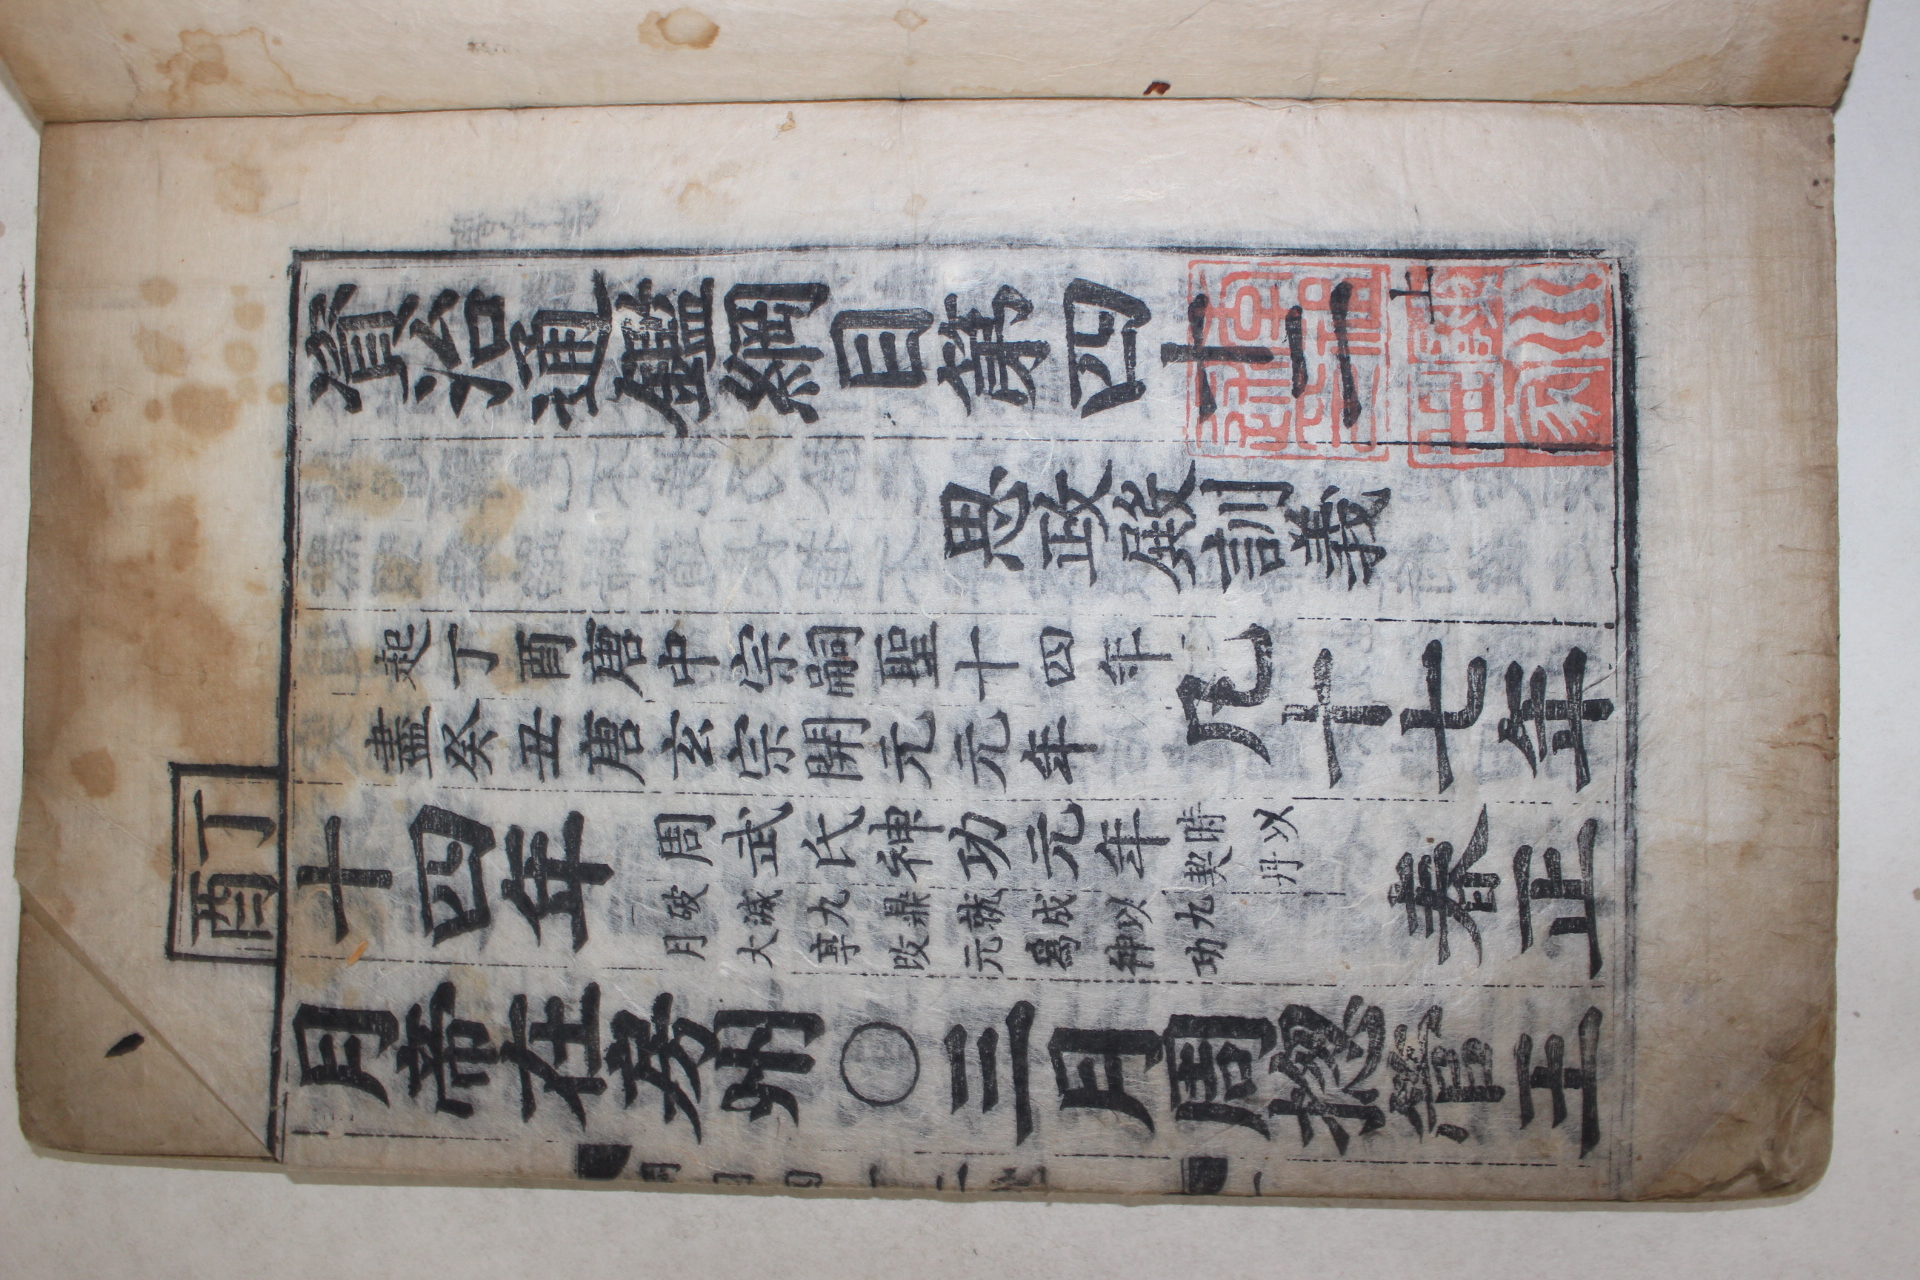 資治通鑑綱目第四十二上
思政殿訓義
起丁酉唐中宗嗣聖十四年
盡癸丑唐玄宗開元元年
凡十七年
丁酉
十四年
周武氏神功元年
時以
契丹
破滅九鼎就成以九
月大享改元爲神功
春正
月帝在房州○三月周摠管王